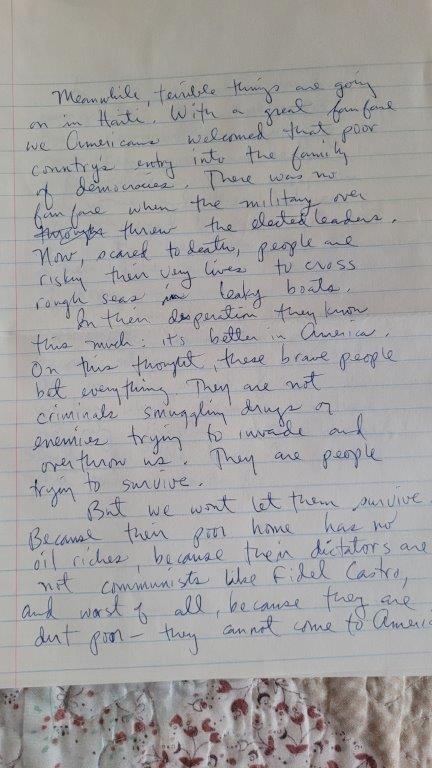 Meanwhile, terrible things are going
on in Haiti. With a great fanfare
we Americans welcomed that poor
country's entry into the family
of democracies. There was no
fanfare when the military over
threw the elected leaders.
Now, scared to death, people are
risking their very lives to cross
rough seas in leaky boats.
In their desperation they know
this much: it's better in America.
On this thought, these brave people
bet everything. They are not
criminals smuggling drugs or
enemies trying to invade and
overthrow us. They are people
trying to survive.
But we wont let them survive.
Because their poor home has no
oil riches, because their dictators are
not communists like Fidel Castro,
and worst of all, because they are
dirt poor – they cannot come to Americ